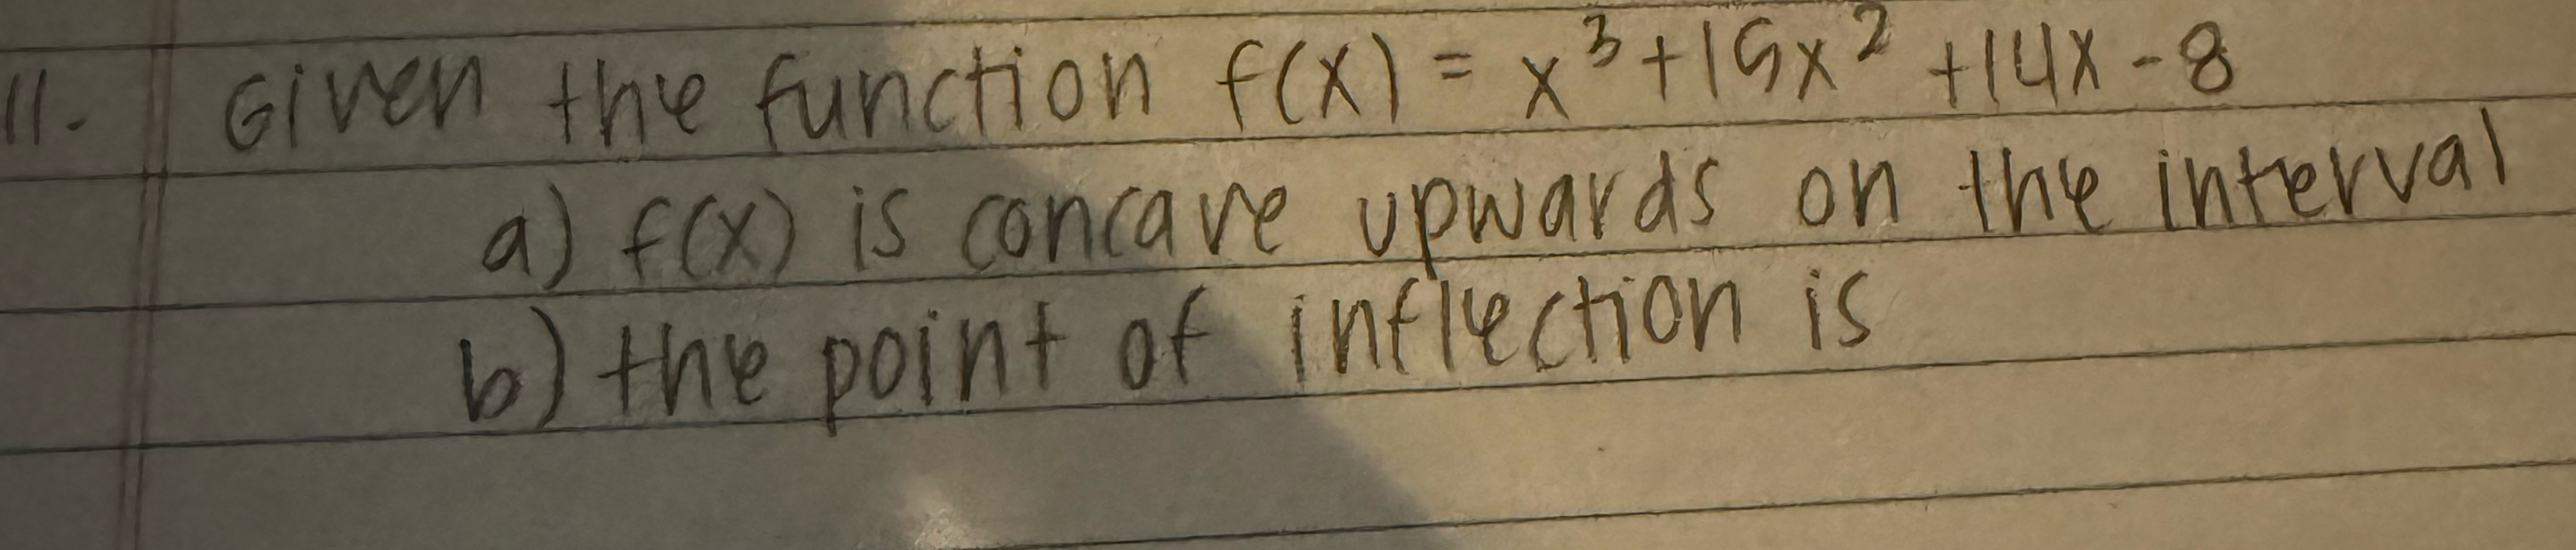 11. Given the function f(x) = x³+15x² +14x-8
a) f(x) is concave upwards on the interval
b) the point of inflection is